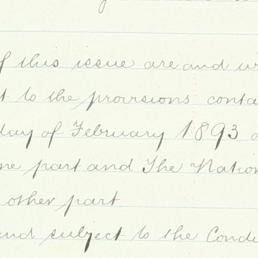 f this issue are and w
t to the provisions conta
day of February 1893
ne part and The Nation
other part
nd subject to the Condi